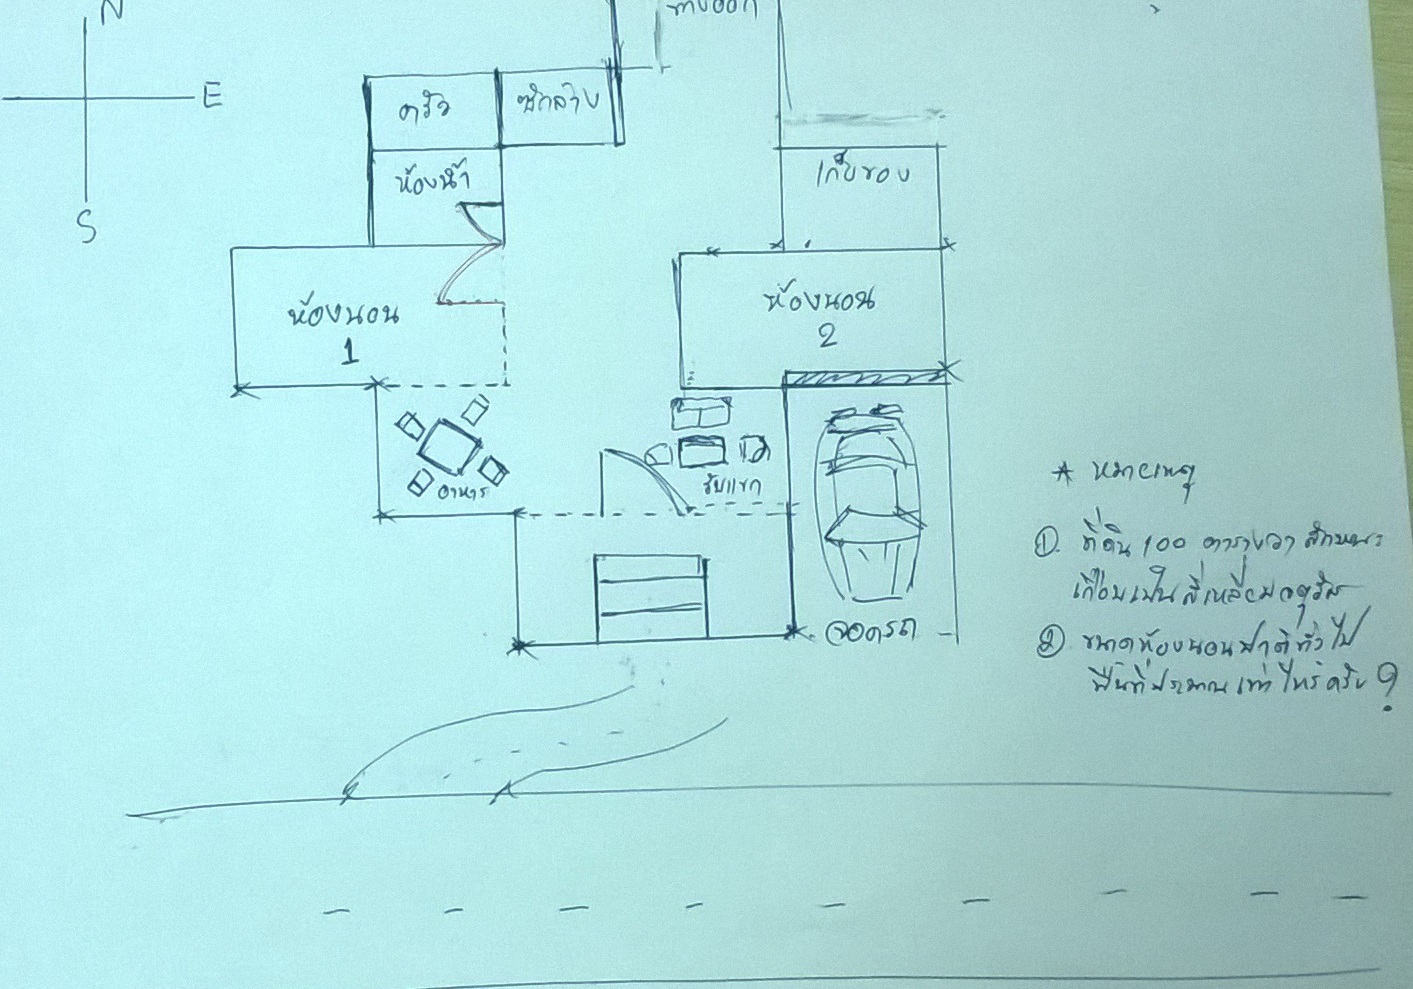 N
ทางออก
E
S
ครัว
ซักล้าง
ห้องน้ำ
เก็บของ
ห้องนอน
1
ห้องนอน
2
อาหาร
รับแขก
จอดรถ
* หมายเหตุ
① ที่ดิน 100 ตารางวา ลักษณะ
เกือบเป็นสี่เหลี่ยมจตุรัส
② ขนาดห้องนอนปกติทั่วไป
พื้นที่ประมาณเท่าไหร่ครับ?